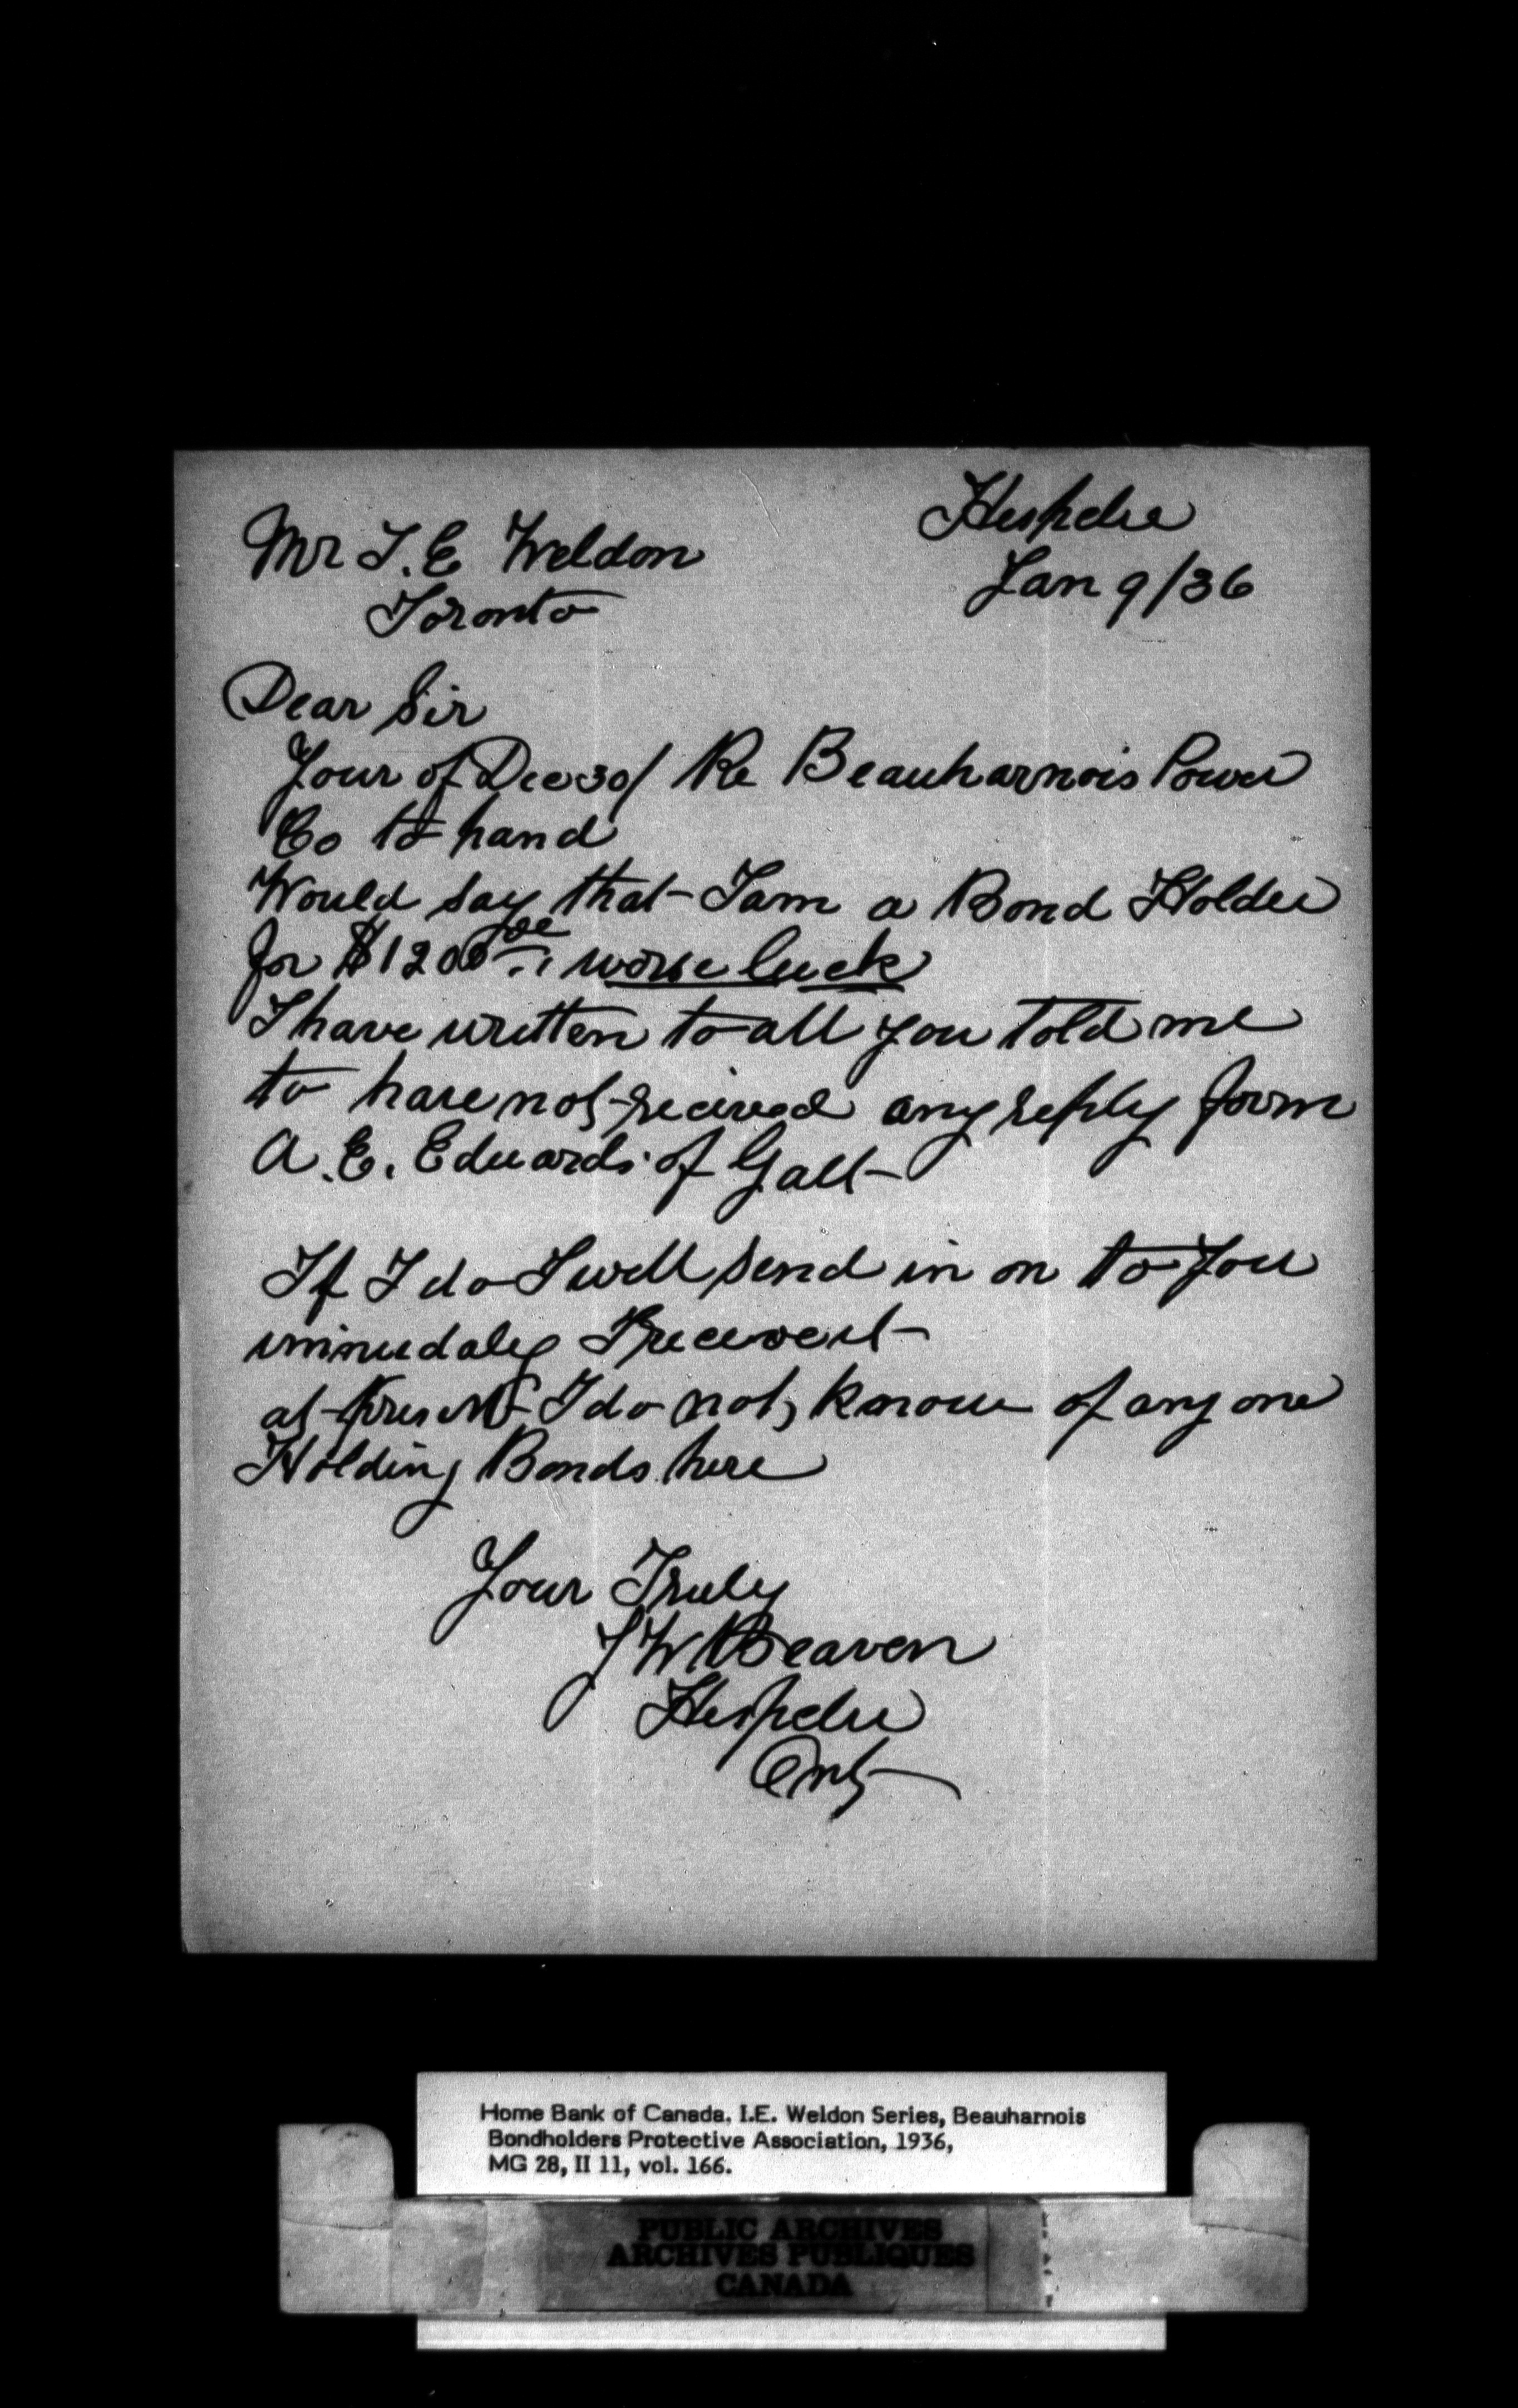 Hespeler
Jan 9/36
Mr I. E Weldon
Toronto
Dear Sir
Your of Dec 30/ Re Beauharnois Power
Co to hand
Would say that I am a Bond Holder
for $1200 00 worse luck
I have written to all you told me
to have not recived any reply form
A. E. Edwards of Galt
If I do I will send in on to you
immedaley I receve it
at present I do not know of any one
Holding Bonds here
Your Truly
J W Beaven
Hespeler
Ont
Home Bank of Canada. I.E. Weldon Series, Beauharnois
Bondholders Protective Association, 1936,
MG 28, II 11, vol. 166.
PUBLIC ARCHIVES
ARCHIVES PUBLIQUES
CANADA